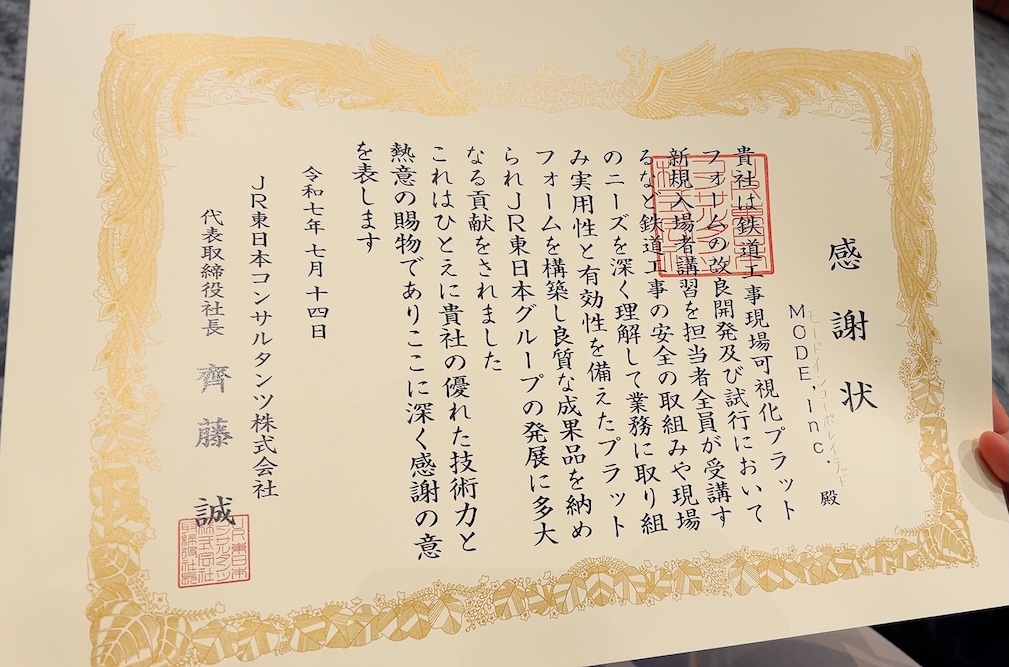 感謝状
モードインコーポレイテッド
MODE, Inc. 殿
貴社は鉄道工事現場可視化プラット
フォームの改良開発及び試行において
新規入場者講習を担当者全員が受講す
るなど鉄道工事の安全の取組みや現場
のニーズを深く理解して業務に取り組
み実用性と有効性を備えたプラット
フォームを構築し良質な成果品を納め
られJR東日本グループの発展に多大
なる貢献をされました
これはひとえに貴社の優れた技術力と
熱意の賜物でありここに深く感謝の意
を表します
令和七年七月十四日
JR東日本コンサルタンツ株式会社
代表取締役社長 齊藤 誠